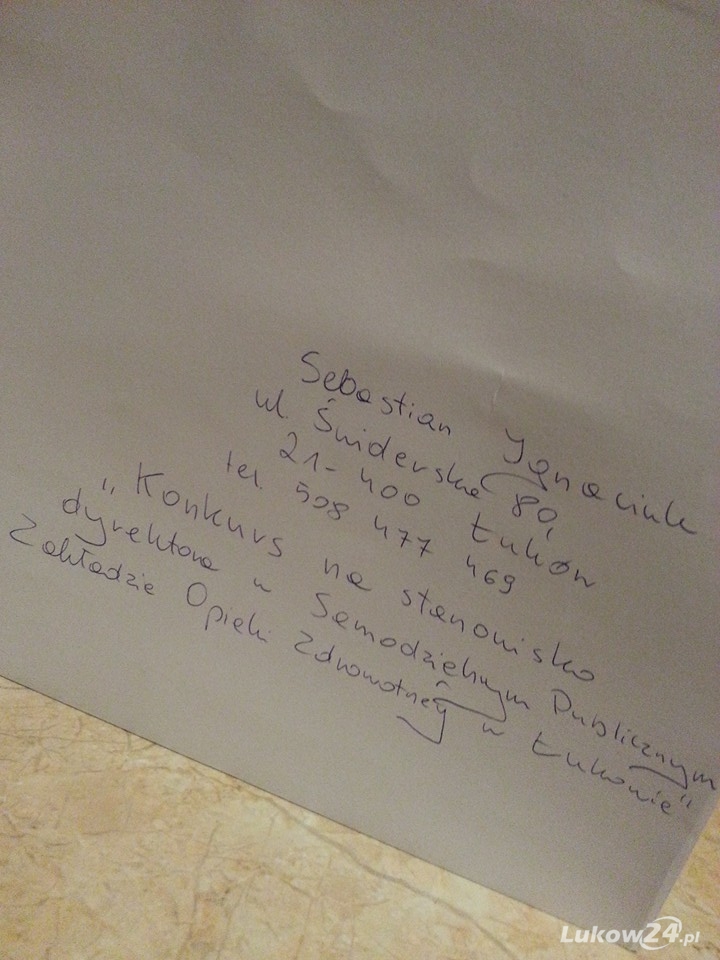 Sebastian Ignaciuk
ul. Świderska 80,
21-400 Łuków
tel. 508 477 469
„Konkurs na stanowisko
dyrektora w Samodzielnym Publicznym
Zakładzie Opieki Zdrowotnej w Łukowie"
Lukow24.pl